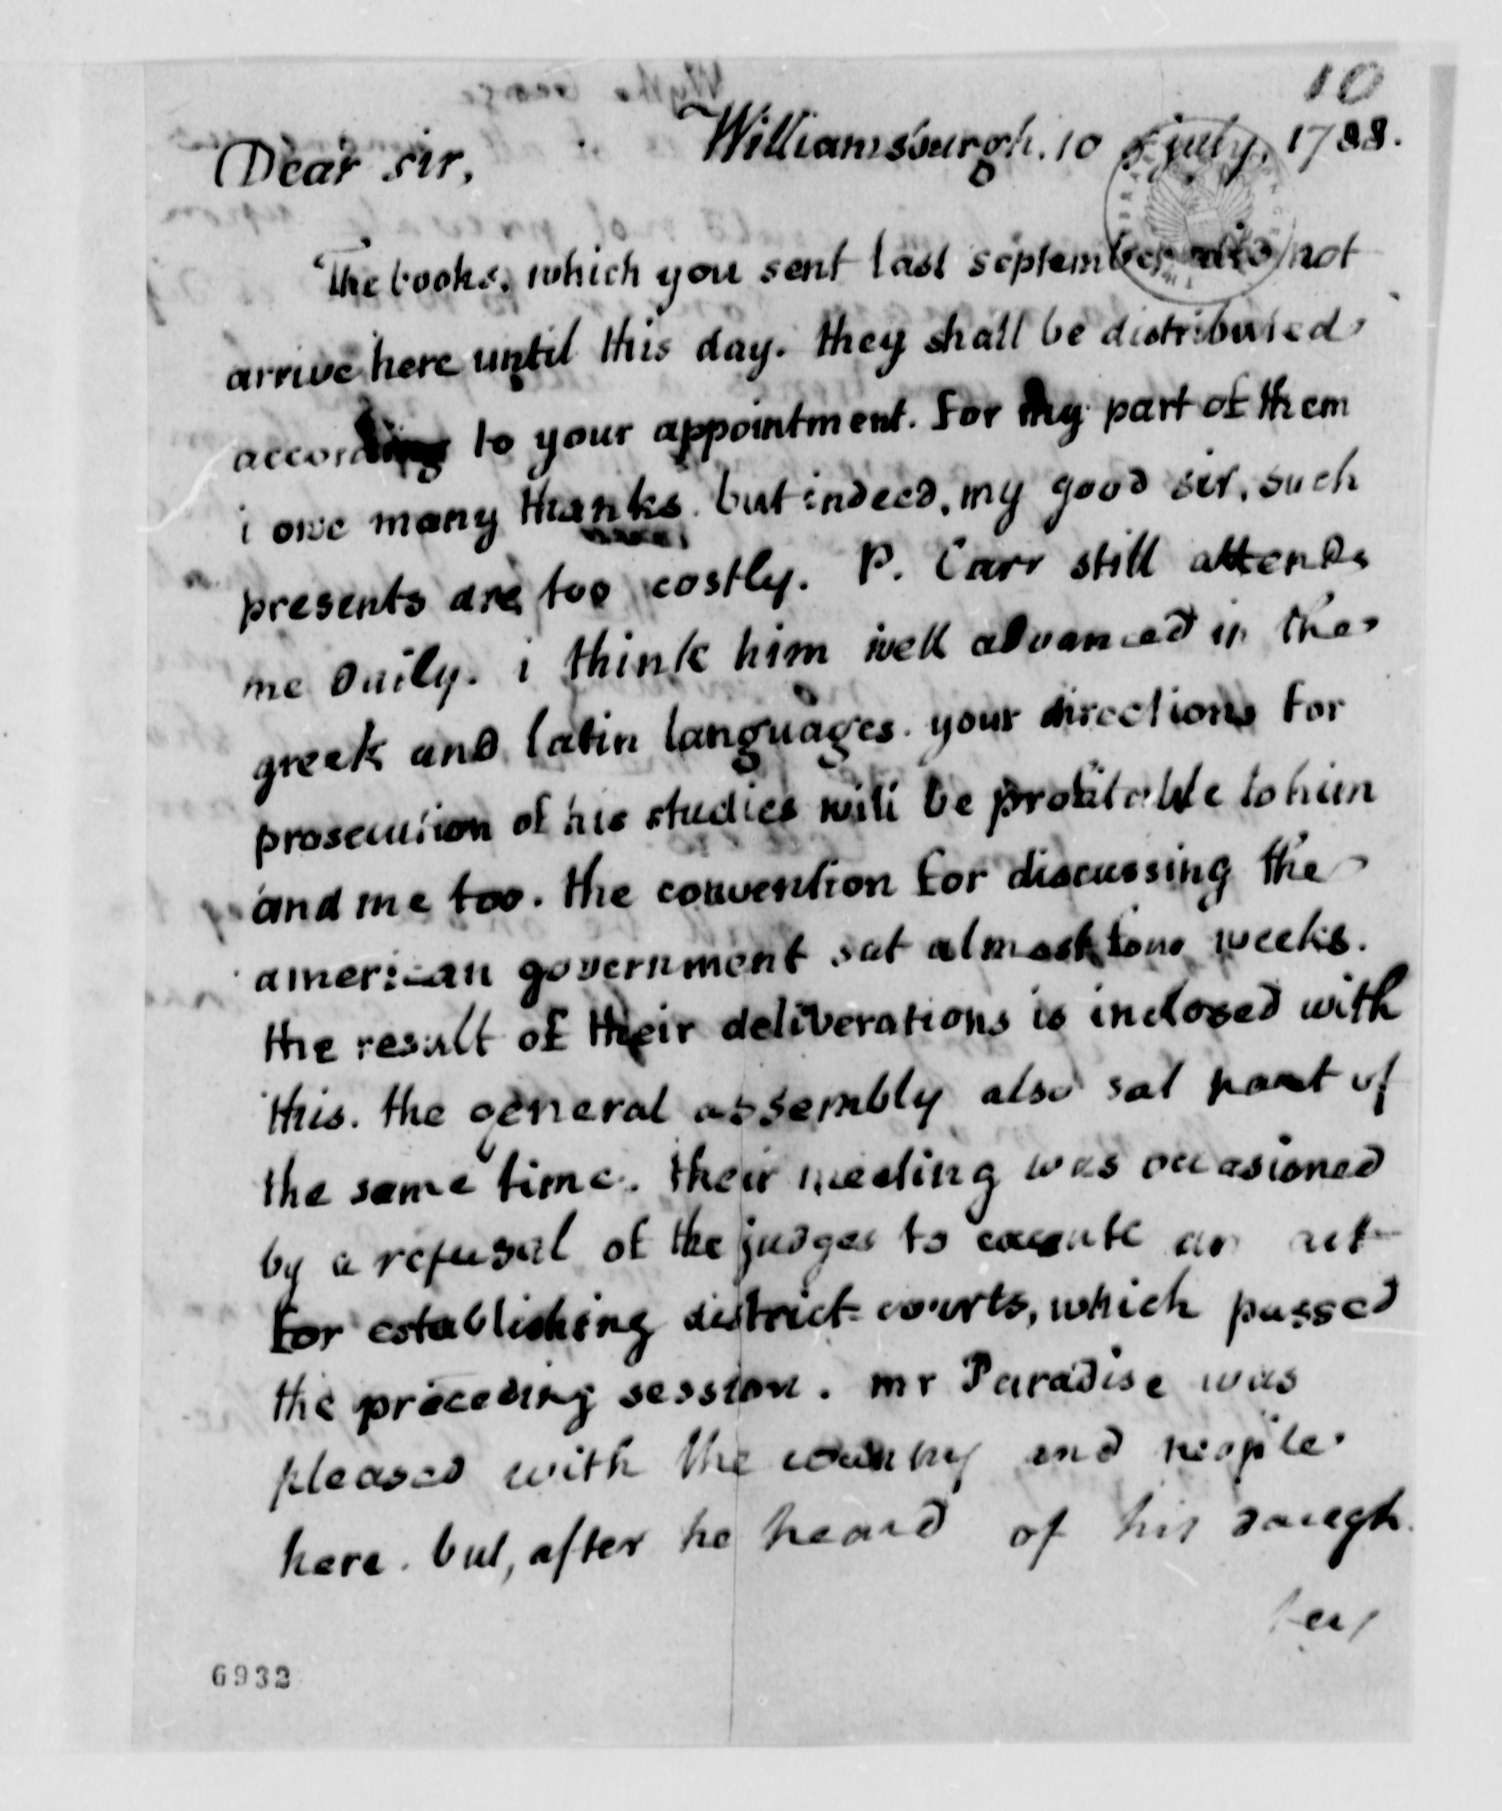 10
Williamsburgh. 10 july, 1788.
Dear sir,
The books, which you sent last september did not
arrive here until this day. they shall be distributed
according to your appointment. For my part of them
i owe many thanks. but indeed, my good sir, such
presents are too costly. P. Carr still attends
me daily. i think him well advanced in the
greek and latin languages. your directions for
prosecution of his studies will be profitable to him
and me too. the convention for discussing the
american government sat almost four weeks.
the result of their deliberations is inclosed with
this. the general assembly also sat part of
the same time. their meeting was occasioned
by a refusal of the judges to execute an act
for establishing district courts, which passed
the preceding session. mr Paradise was
pleased with the country and people
here. but, after he heard of his daugh
ters
6932